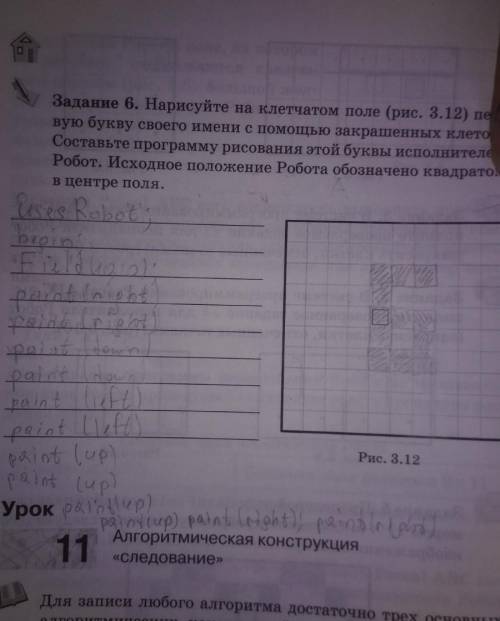 Задание 6. Нарисуйте на клетчатом поле (рис. 3.12) пе
вую букву своего имени с помощью закрашенных клето
Составьте программу рисования этой буквы исполнителе
Робот. Исходное положение Робота обозначено квадрато
в центре поля.
Uses Robot;
begin
Field
paint (right)
paint (right)
paint (down)
paint (down
paint (left)
paint (left)
paint (up)
paint (up)
Рис. 3.12
Урок paint (up)
paint (up) paint (right);
11 Алгоритмическая конструкция
«следование»
Для записи любого алгоритма достаточно трех основны